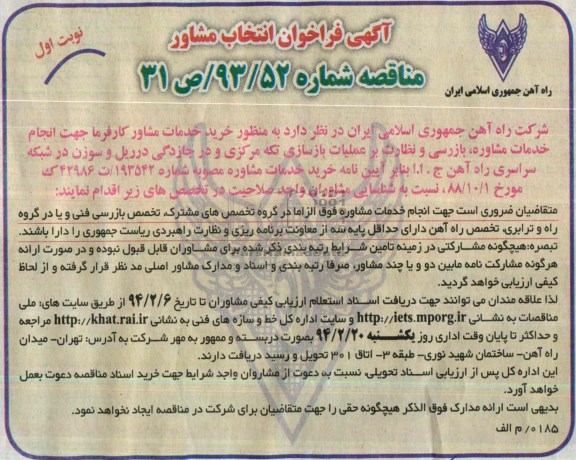 نوبت اول
آگهی فراخوان انتخاب مشاور
مناقصه شماره ۹۳/۵۲/ص ۳۱
راه آهن جمهوری اسلامی ایران
شرکت راه آهن جمهوری اسلامی ایران در نظر دارد به منظور خرید خدمات مشاور کارفرما جهت انجام
خدمات مشاوره، بازرسی و نظارت بر عملیات بازسازی تکه مرکزی و در جازدگی درریل و سوزن در شبکه
سراسری راه آهن ج . ا.ا بنابر آیین نامه خرید خدمات مشاوره مصوبه شماره ۱۹۳۵۴۲/ت ۴۲۹۸۶ک
مورخ ۸۸/۱۰/۱، نسبت به شناسایی مشاوران واجد صلاحیت در تخصص های زیر اقدام نمایند:
متقاضیان ضروری است جهت انجام خدمات مشاوره فوق الزاما در گروه تخصص های مشترک، تخصص بازرسی فنی و یا در گروه
راه و ترابری، تخصص راه آهن دارای حداقل پایه سه از معاونت برنامه ریزی و نظارت راهبردی ریاست جمهوری را دارا باشند.
تبصره:هیچگونه مشارکتی در زمینه تامین شرایط رتبه بندی ذکر شده برای مشاوران قابل قبول نبوده و در صورت ارائه
هرگونه مشارکت نامه مابین دو و یا چند مشاور، صرفا رتبه بندی و اسناد و مدارک مشاور اصلی مد نظر قرار گرفته و از لحاظ
کیفی ارزیابی خواهد گردید.
لذا علاقه مندان می توانند جهت دریافت اسناد استعلام ارزیابی کیفی مشاوران تا تاریخ ۹۴/۲/۶ از طریق سایت های: ملی
مناقصات به نشانی http://iets.mporg.ir و سایت اداره کل خط و سازه های فنی به نشانی http://khat.rai.ir مراجعه
و حداکثر تا پایان وقت اداری روز یکشنبه ۹۴/۲/۲۰ بصورت دربسته و ممهور به مهر شرکت به آدرس: تهران- میدان
راه آهن- ساختمان شهید نوری- طبقه ۳- اتاق ۳۰۱ تحویل و رسید دریافت دارند.
این اداره کل پس از ارزیابی اسناد تحویلی، نسبت به دعوت از مشاوران واجد شرایط جهت خرید اسناد مناقصه دعوت بعمل
خواهد آورد.
بدیهی است ارائه مدارک فوق الذکر هیچگونه حقی را جهت متقاضیان برای شرکت در مناقصه ایجاد نخواهد نمود.
۰۱۸۵/ م الف